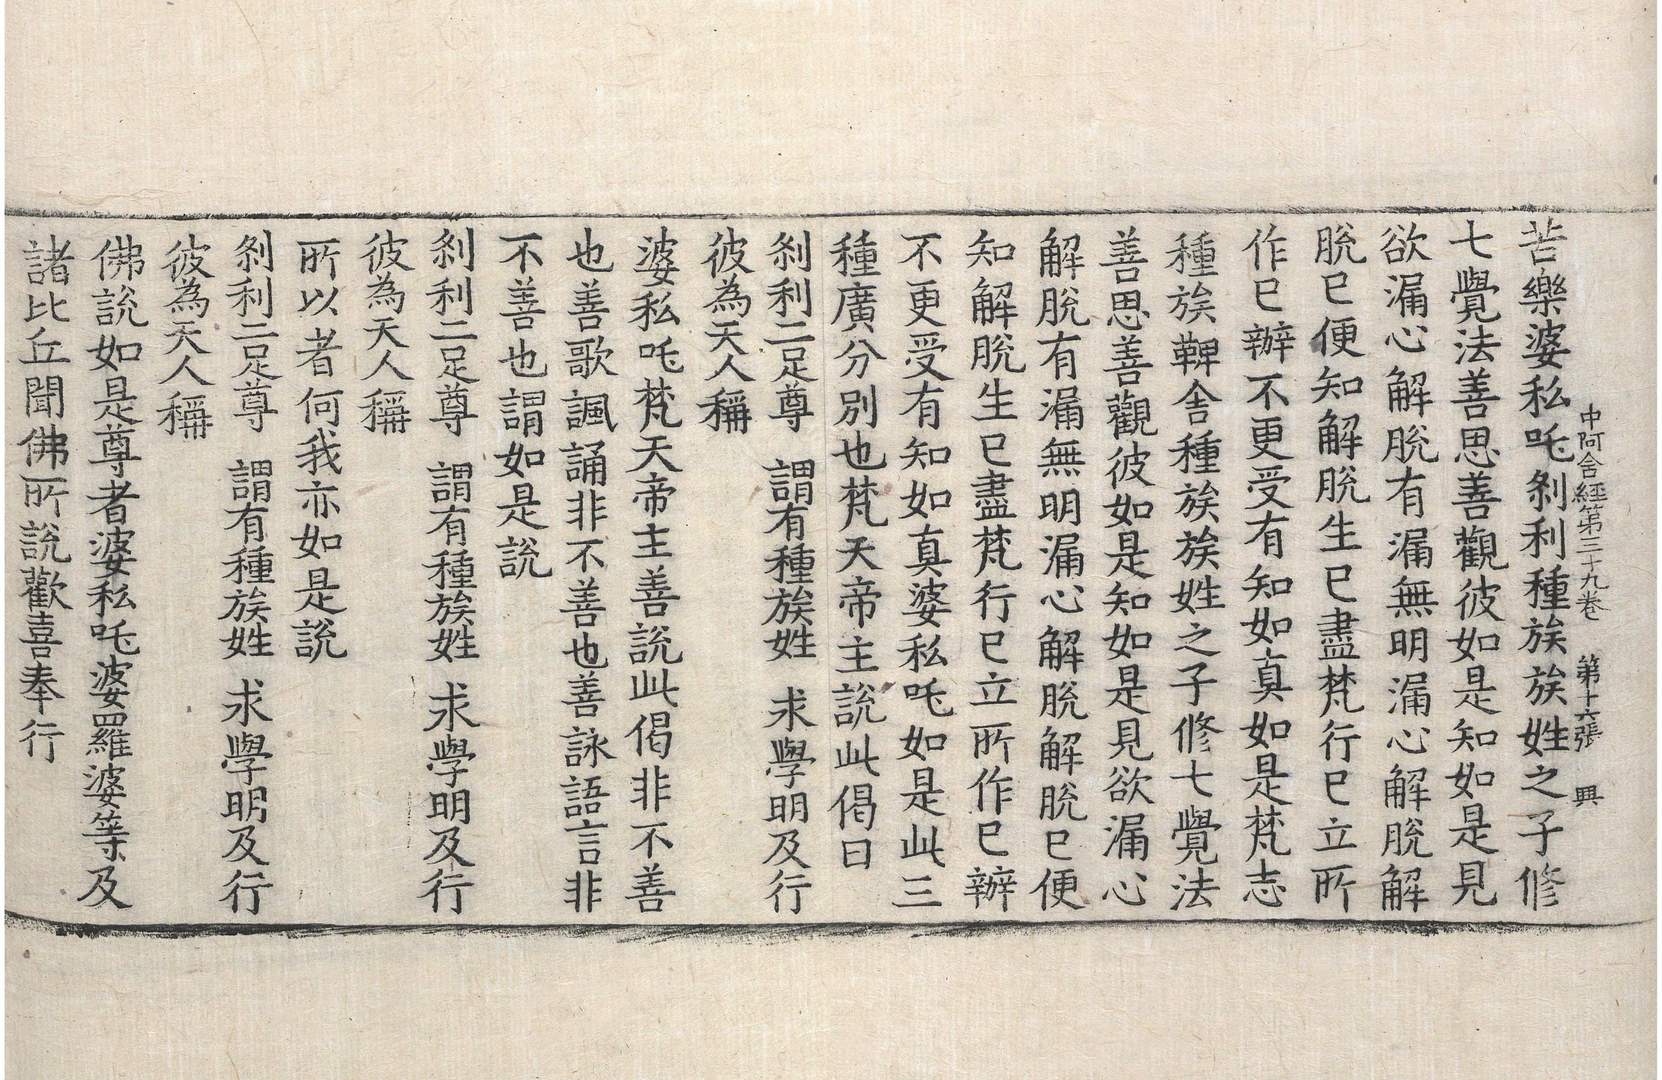 中阿含經第三十九卷　第十六張　興
苦樂婆私吒剎利種族族姓之子修
七覺法善思善觀彼如是知如是見
欲漏心解脫有漏無明漏心解脫解
脫已便知解脫生已盡梵行已立所
作已辦不更受有知如真如是梵志
種族鞞舍種族族姓之子修七覺法
善思善觀彼如是知如是見欲漏心
解脫有漏無明漏心解脫解脫已便
知解脫生已盡梵行已立所作已辦
不更受有知如真婆私吒如是此三
種廣分別也梵天帝主說此偈曰
剎利二足尊　謂有種族姓　求學明及行
彼為天人稱
婆私吒梵天帝主善說此偈非不善
也善歌諷誦非不善也善詠語言非
不善也謂如是說
剎利二足尊　謂有種族姓　求學明及行
彼為天人稱
所以者何我亦如是說
剎利二足尊　謂有種族姓　求學明及行
彼為天人稱
佛說如是尊者婆私吒婆羅婆等及
諸比丘聞佛所說歡喜奉行